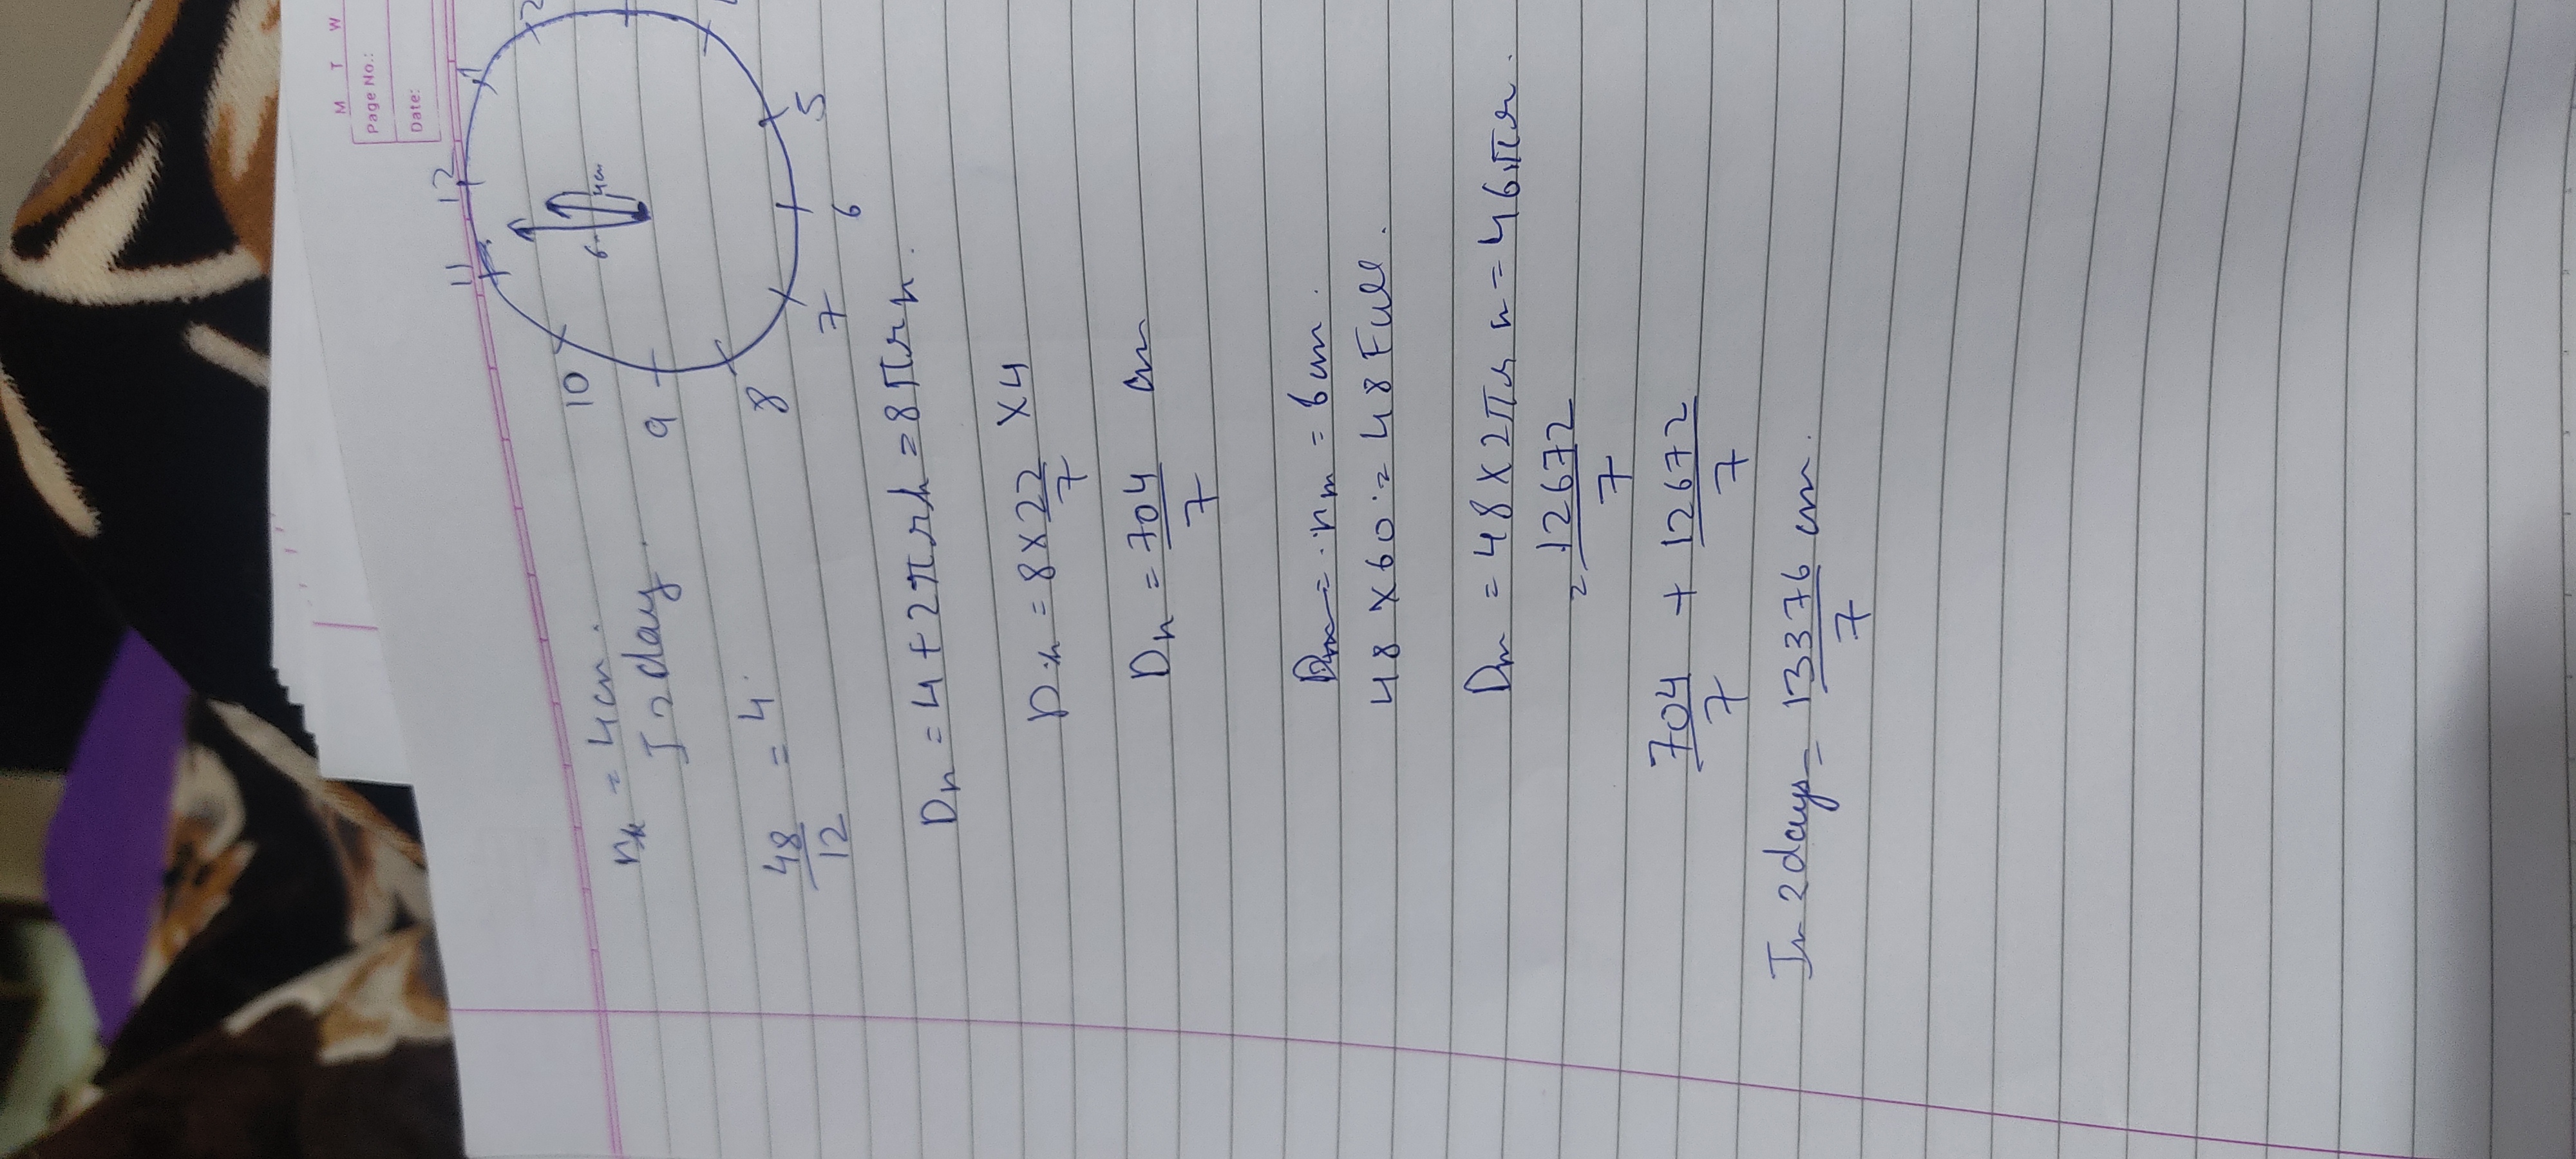 M T W
Page No.:
Date:
11 12 1 2
10
9
8
7
6
5
6
4cm
r_h = 4cm.
I 2 day.
48/12 = 4.
D_h = 4 + 2πr_h = 8πr_h.
D_h = 8 × 22/7 × 4
D_h = 704/7 cm
r_m = 6cm.
48 × 60 = 48 Full.
D_m = 48 × 2πr_m = 46πr.
= 12672/7
704/7 + 12672/7
In 2 days = 13376/7 cm.